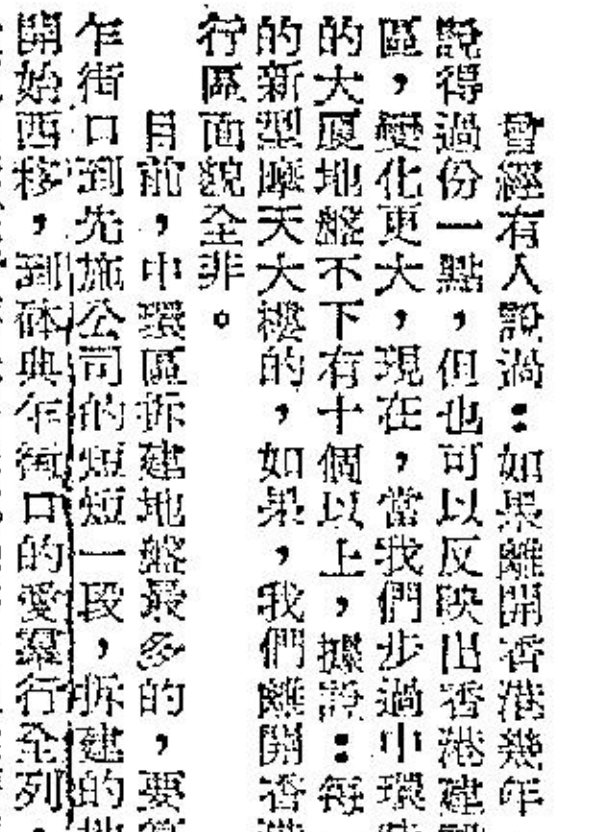 曾經有人說過：如果離開香港幾年
說得過份一點，但也可以反映出香港建
區，變化更大，現在，當我們步過中環
的大厦地盤不下有十個以上，據說：每
的新型摩天大樓的，如果，我們離開香
行區面貌全非。
目前，中環區拆建地盤最多的，要
乍街口到先施公司的短短一段，拆建的
開始西移，到砵典乍街口的愛羣行全列，